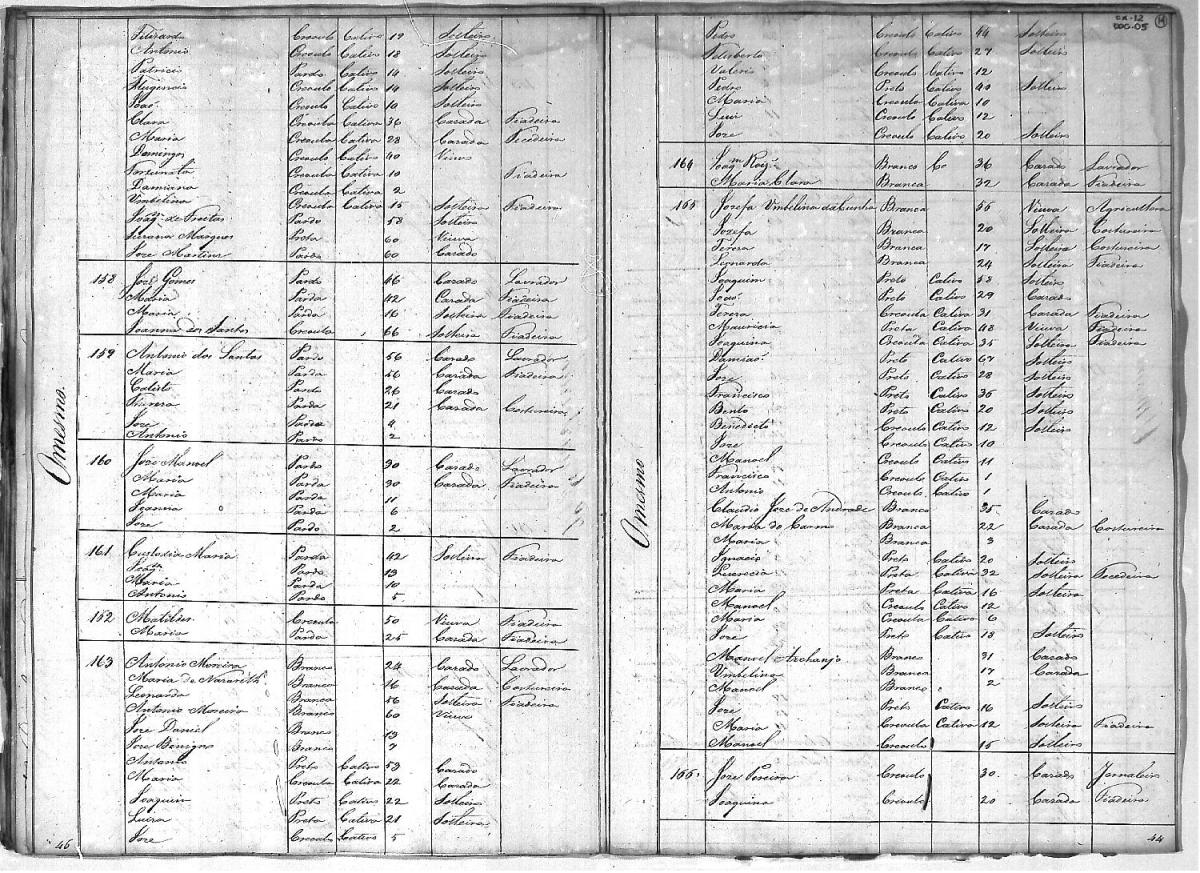 Antonio Creoulo Cativo 18 Solteiro
Patricio Pardo Cativo 14 Solteiro
Creoulo Cativo 14 Solteiro
João Creoulo Cativo 10 Solteiro
Clara Creoula Cativa 36 Casada Fiadeira
Maria Creoula Cativa 28 Casada Tecedeira
Domingos Creoulo Cativo 40 Viuvo
Fortunata Creoula Cativa 10 Fiadeira
Damiana Creoula Cativa 2
Umbelina Creoula Cativa 15 Solteira Fiadeira
Joaqᵐ de Freitas Pardo 58 Solteiro
Marques Preta 60 Viuva
Joze Martins Pardo 60 Casado
158 Joze Gomes Pardo 46 Casado Lavrador
Maria Parda 42 Casada Fiadeira
Maria Parda 16 Solteira Fiadeira
Joanna dos Santos Creoula 66 Solteira Fiadeira
159 Antonio dos Santos Pardo 56 Casado Lavrador
Maria Parda 46 Casada Fiadeira
Calisto Pardo 26 Casado
Parda 21 Casada Costureira
Joze Pardo 4
Antonio Pardo 2
Omesmo.
160 João Manoel Pardo 30 Casado Lavrador
Maria Parda 30 Casada Fiadeira
Maria Parda 11
Joanna Parda 6
Joze Pardo 2
161 Custodia Maria Parda 42 Solteira Fiadeira
Joaqᵐ Pardo 13
Maria Parda 10
Antonio Pardo 5
162 Matildes Creoula 50 Viuva Fiadeira
Maria Parda 25 Casada Fiadeira
163 Antonio Moreira Branco 24 Casado Lavrador
Maria de Nazarith Branca 16 Casada Costureira
Leonarda Branca 56 Solteira Fiadeira
Antonio Moreira Branco 60 Viuvo
Joze Daniel Branco 13
Joze Benigno Branco 7
Antonio Preto Cativo 53 Casado
Maria Creoula Cativa 22 Casada
Joaquim Preto Cativo 22 Solteiro
Luiza Preta Cativa 21 Solteira
Joze Creoulo Cativo 5
46
CX-12
DOC-05
Pedro Creoulo Cativo 44 Solteiro
Felisberto Creoulo Cativo 27 Solteiro
Valerio Creoulo Cativo 12
Pedro Preto Cativo 40 Solteiro
Maria Creoula Cativa 10
Luis Creoulo Cativo 12
Joze Creoulo Cativo 20 Solteiro
164 Joaqᵐ Roiz Branco 36 Casado Lavrador
Maria Clara Branca 32 Casada Fiadeira
155 Jozefa Umbelina da Cunha Branca 55 Viuva Agricultora
Jozefa Branca 20 Solteira Costureira
Tereza Branca 17 Solteira Costureira
Lernarda Branca 24 Solteira Fiadeira
Joaquim Preto Cativo 53 Solteiro
João Preto Cativo 29 Casado
Tereza Creoula Cativa 31 Casada Fiadeira
Mauricia Preta Cativa 48 Viuva Fiadeira
Joaquina Creoula Cativa 35 Solteira Fiadeira
Damiaõ Preto Cativo 67 Solteiro
Joze Preto Cativo 28 Solteiro
Francisco Preto Cativo 36 Solteiro
Bento Preto Cativo 20 Solteiro
Benedicto Creoulo Cativo 12 Solteiro
Joze Creoulo Cativo 10
Manoel Creoulo Cativo 11
Francisco Creoulo Cativo 1
Antonio Creoulo Cativo 1
Claudio Joze de Andrade Branco 35 Casado
Maria do Carmo Branca 22 Casada Costureira
Maria Branca 3
Ignacio Preto Cativo 20 Solteiro
Preta Cativa 32 Solteira Tecedeira
Maria Preta Cativa 16 Solteira
Manoel Creoulo Cativo 12
Maria Creoula Cativa 6
Joze Preto Cativo 13 Solteiro
Omesmo
Manoel Archanjo Branco 31 Casado
Umbelina Branca 17 Casada
Manoel Branco 2
Joze Preto Cativo 16 Solteiro
Maria Creoula Cativa 12 Solteira Fiadeira
Manoel Creoulo 15 Solteiro
166. Joze Pereira Creoulo 30. Casado Jornaleiro
Joaquina Creoula 20 Casada Fiadeira
44